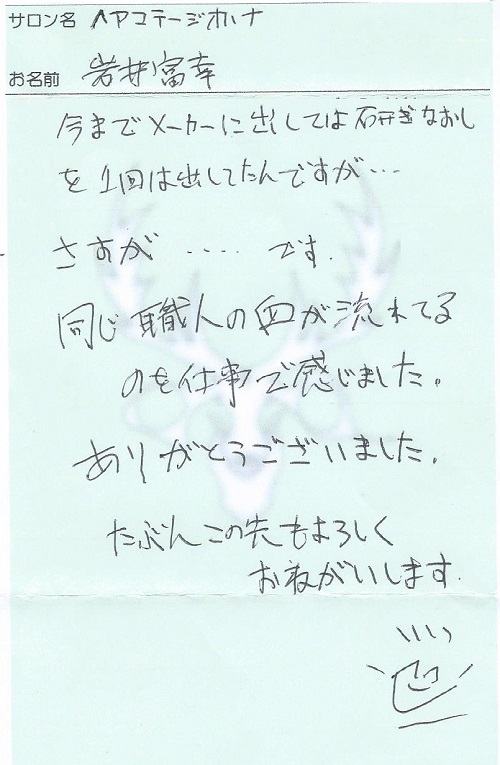 サロン名 ヘアコテージオハナ
お名前 岩井富幸
今までメーカーに出しては研ぎなおし
を1回は出してたんですが…
さすが ‥‥ です.
同じ職人の血が流れてる
のを仕事で感じました。
ありがとうございました。
たぶんこの先もよろしく
おねがいします.